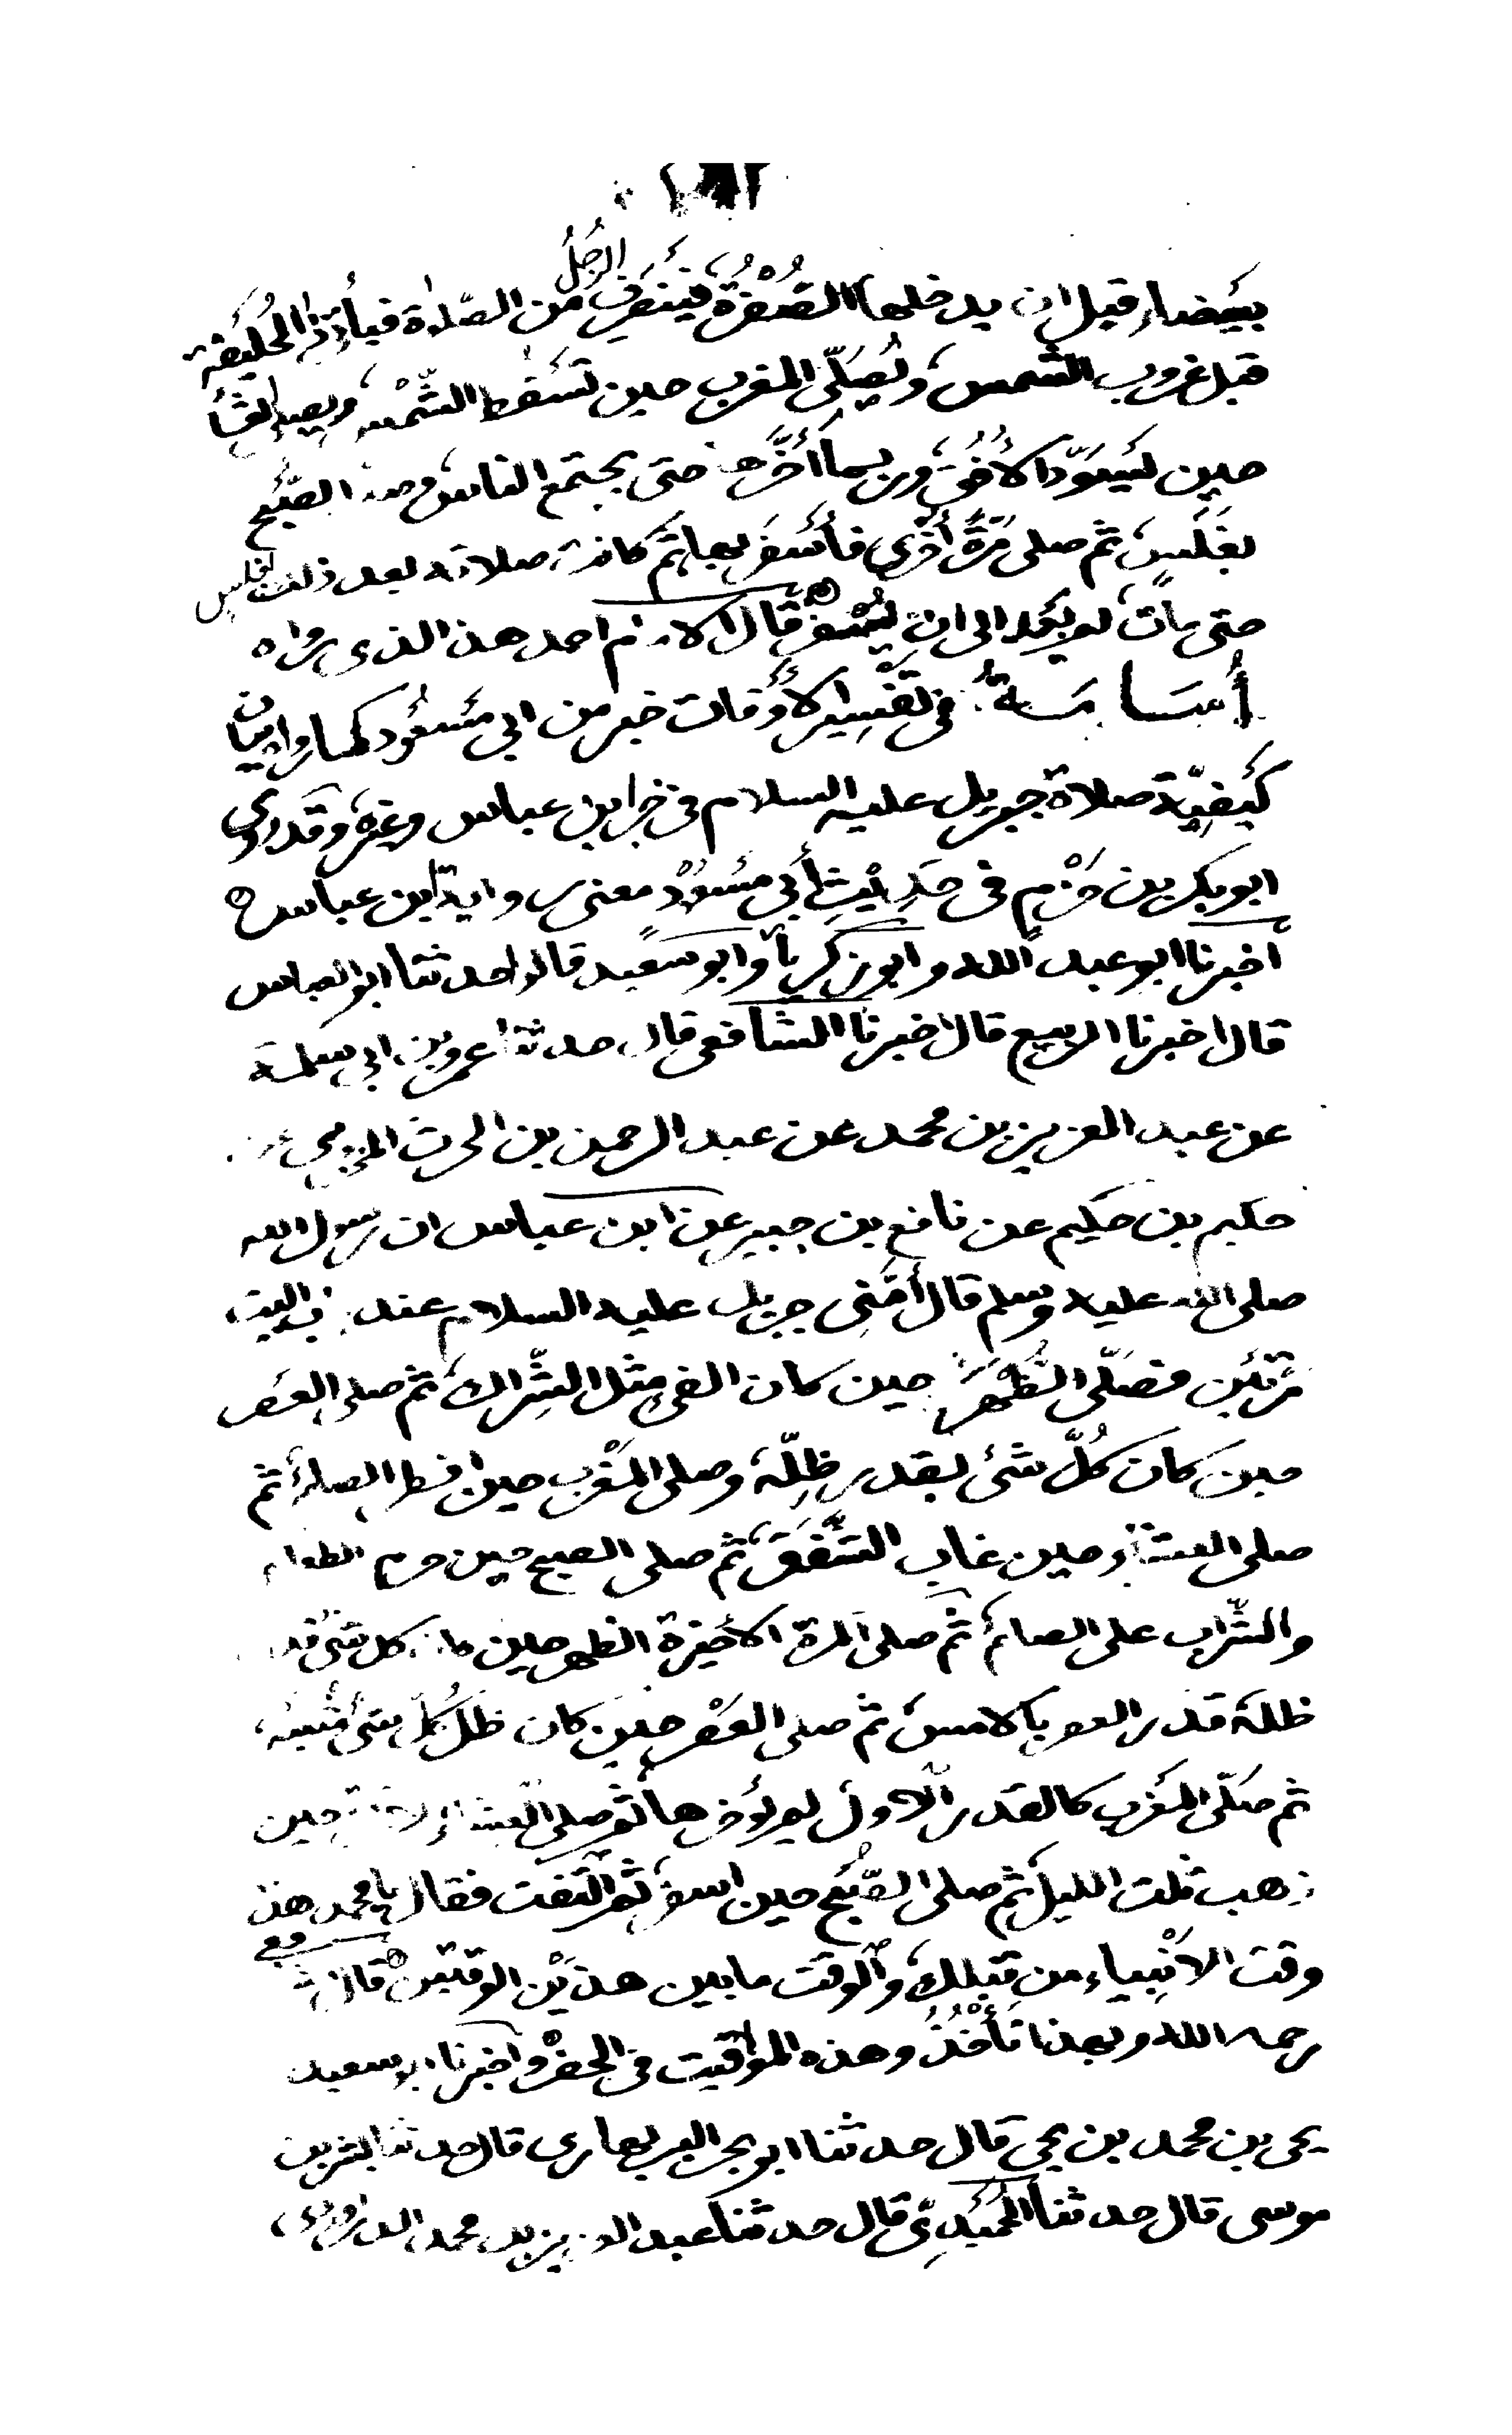 بيضاء قبل ان يدخلها الصُّفْرَةُ فينصرف الرجُلُ من الصّلاة فيأتى ذا الحُلَيْفَة
قبل غروب الشمس ويُصَلّى المغرب حين تسقط الشّمْس ويصلى العشاء
حين يَسْوَدّ الاُفُق وربما أَخَّرها حتى يجتمع الناس وصلى الصّبْح
بغَلَس ثم صلى مَرّةً أُخْرى فأَسْفَر بها ثم كانت صلاته بعد ذلك بغلس
حتى مات لم يَعُد الى ان يُسْفِر قال الامام احمد هذا الذى رواه
أُسَامَةُ في تَفْسِير الاَوْقات خبر من ابي مَسْعُود كما رواه بيان
كَيْفيّة صلاة جبريل عليه السلام في خبر ابن عباس وغيره وقد روى
ابو بكر بن حَزْم في حَدِيْثِ أَبي مَسْعُوْد معنى رواية ابن عباس
أخبرنا ابو عبد الله وابو زكريا وابو سعيد قالوا حدثنا ابو العباس
قال اخبرنا الربيع قال اخبرنا الشافعى قال حدثنا عمرو بن ابي سلمة
عن عبد العزيز بن محمد عن عبد الرحمن بن الحرث المخزومي عن
حكيم بن حكيم عن نافع بن جبير عن ابن عباس ان رسول الله
صلى الله عليه وسلم قال أَمَّنِى جبريل عليه السلام عند باب البيت
مَرّتَيْن فصَلّى الظُّهْر حين كان الفىء مثل الشِّراك ثم صلى العصر
حين كان كُلّ شىء بقدر ظِلِّه وصلى المغْرب حين افطر الصائم ثم
صلى العشاء حين غاب الشَّفَق ثم صلى الصبح حين حرم الطعام
والشّراب على الصائم ثم صلى المرة الاخيرة الظهر حين كان كل شىء قدر
ظله قدر العصر بالامس ثم صلى العَصْر حين كان ظل كُلّ شىء مثليه
ثم صَلّى المَغْرب كالقدر الاول لم يؤخرها ثم صلى العشاء الاخرة حين
ذهب ثلث الليل ثم صلى الصّبْح حين اسفر ثم التفت فقال يا محمد هذا
وقت الاَنْبِياء من قبلك والوقت ما بين هذَيْن الوقتين قال الشافعي
رحمه الله وبهذا نَأْخُذُ وهذه المواقيت في الحضر واخبرنا ابو سعيد
يحيى بن محمد بن يحيى قال حدثنا ابو بحر البربهارى قال حدثنا بشر بن
موسى قال حدثنا الحُمَيْدِىّ قال حدثنا عبد العزيز بن محمد الدراوردى